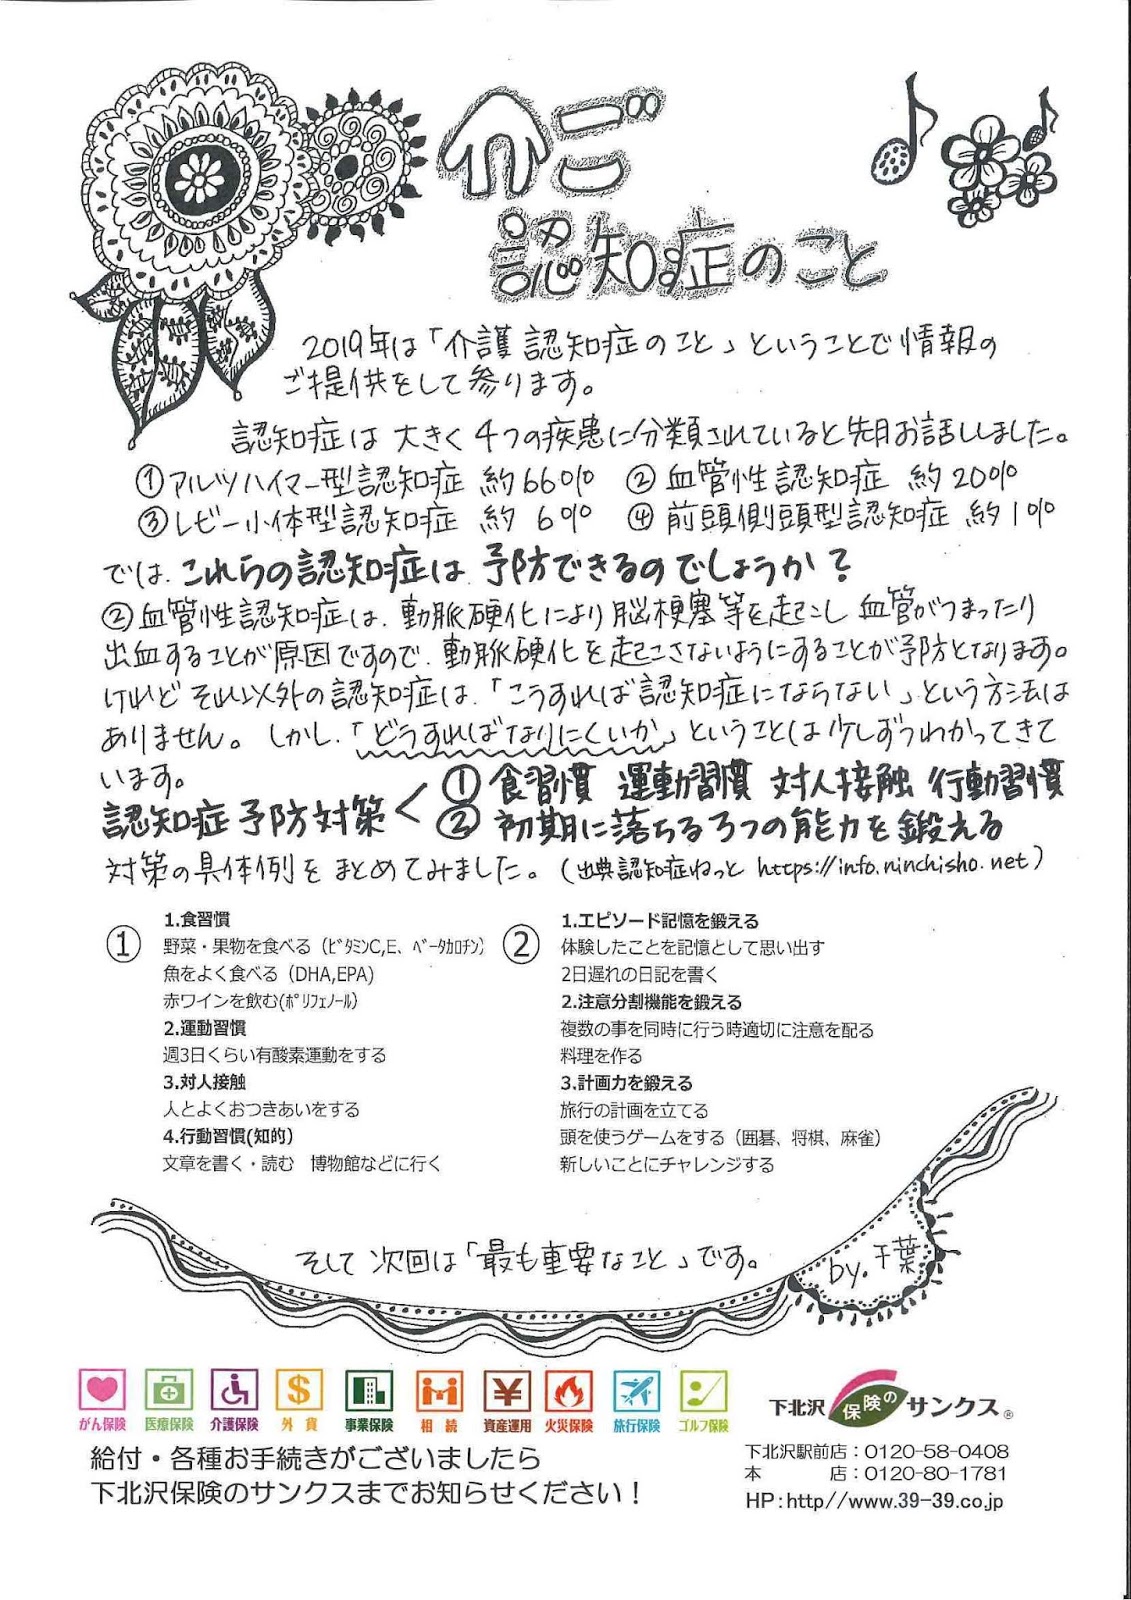 介ご
認知症のこと
2019年は「介護 認知症のこと」ということで情報の
ご提供をして参ります。
認知症は 大きく 4つの疾患に分類されていると先月お話ししました。
①アルツハイマー型認知症 約66% ②血管性認知症 約20%
③レビー小体型認知症 約 6% ④前頭側頭型認知症 約1%
では、これらの認知症は 予防できるのでしょうか?
②血管性認知症は、動脈硬化により脳梗塞等を起こし 血管がつまったり
出血することが原因ですので、動脈硬化を起こさないようにすることが予防となります。
けれど それ以外の認知症は、「こうすれば認知症にならない」という方法は
ありません。しかし、「どうすればなりにくいか」ということは少しずつわかってきて
います。
認知症予防対策< ①食習慣 運動習慣 対人接触 行動習慣
②初期に落ちる3つの能力を鍛える
対策の具体例をまとめてみました。(出典認知症ねっと https://info.ninchisho.net)
①
1.食習慣
野菜・果物を食べる(ビタミンC,E、ベータカロチン)
魚をよく食べる(DHA,EPA)
赤ワインを飲む(ポリフェノール)
2.運動習慣
週3日くらい有酸素運動をする
3.対人接触
人とよくおつきあいをする
4.行動習慣(知的)
文章を書く・読む 博物館などに行く
②
1.エピソード記憶を鍛える
体験したことを記憶として思い出す
2日遅れの日記を書く
2.注意分割機能を鍛える
複数の事を同時に行う時適切に注意を配る
料理を作る
3.計画力を鍛える
旅行の計画を立てる
頭を使うゲームをする(囲碁、将棋、麻雀)
新しいことにチャレンジする
そして 次回は「最も重要なこと」です。
by.千葉
がん保険 医療保険 介護保険 外貨 事業保険 相続 資産運用 火災保険 旅行保険 ゴルフ保険
給付・各種お手続きがございましたら
下北沢保険のサンクスまでお知らせください!
下北沢 保険の サンクス®
下北沢駅前店:0120-58-0408
本 店:0120-80-1781
HP:http//www.39-39.co.jp